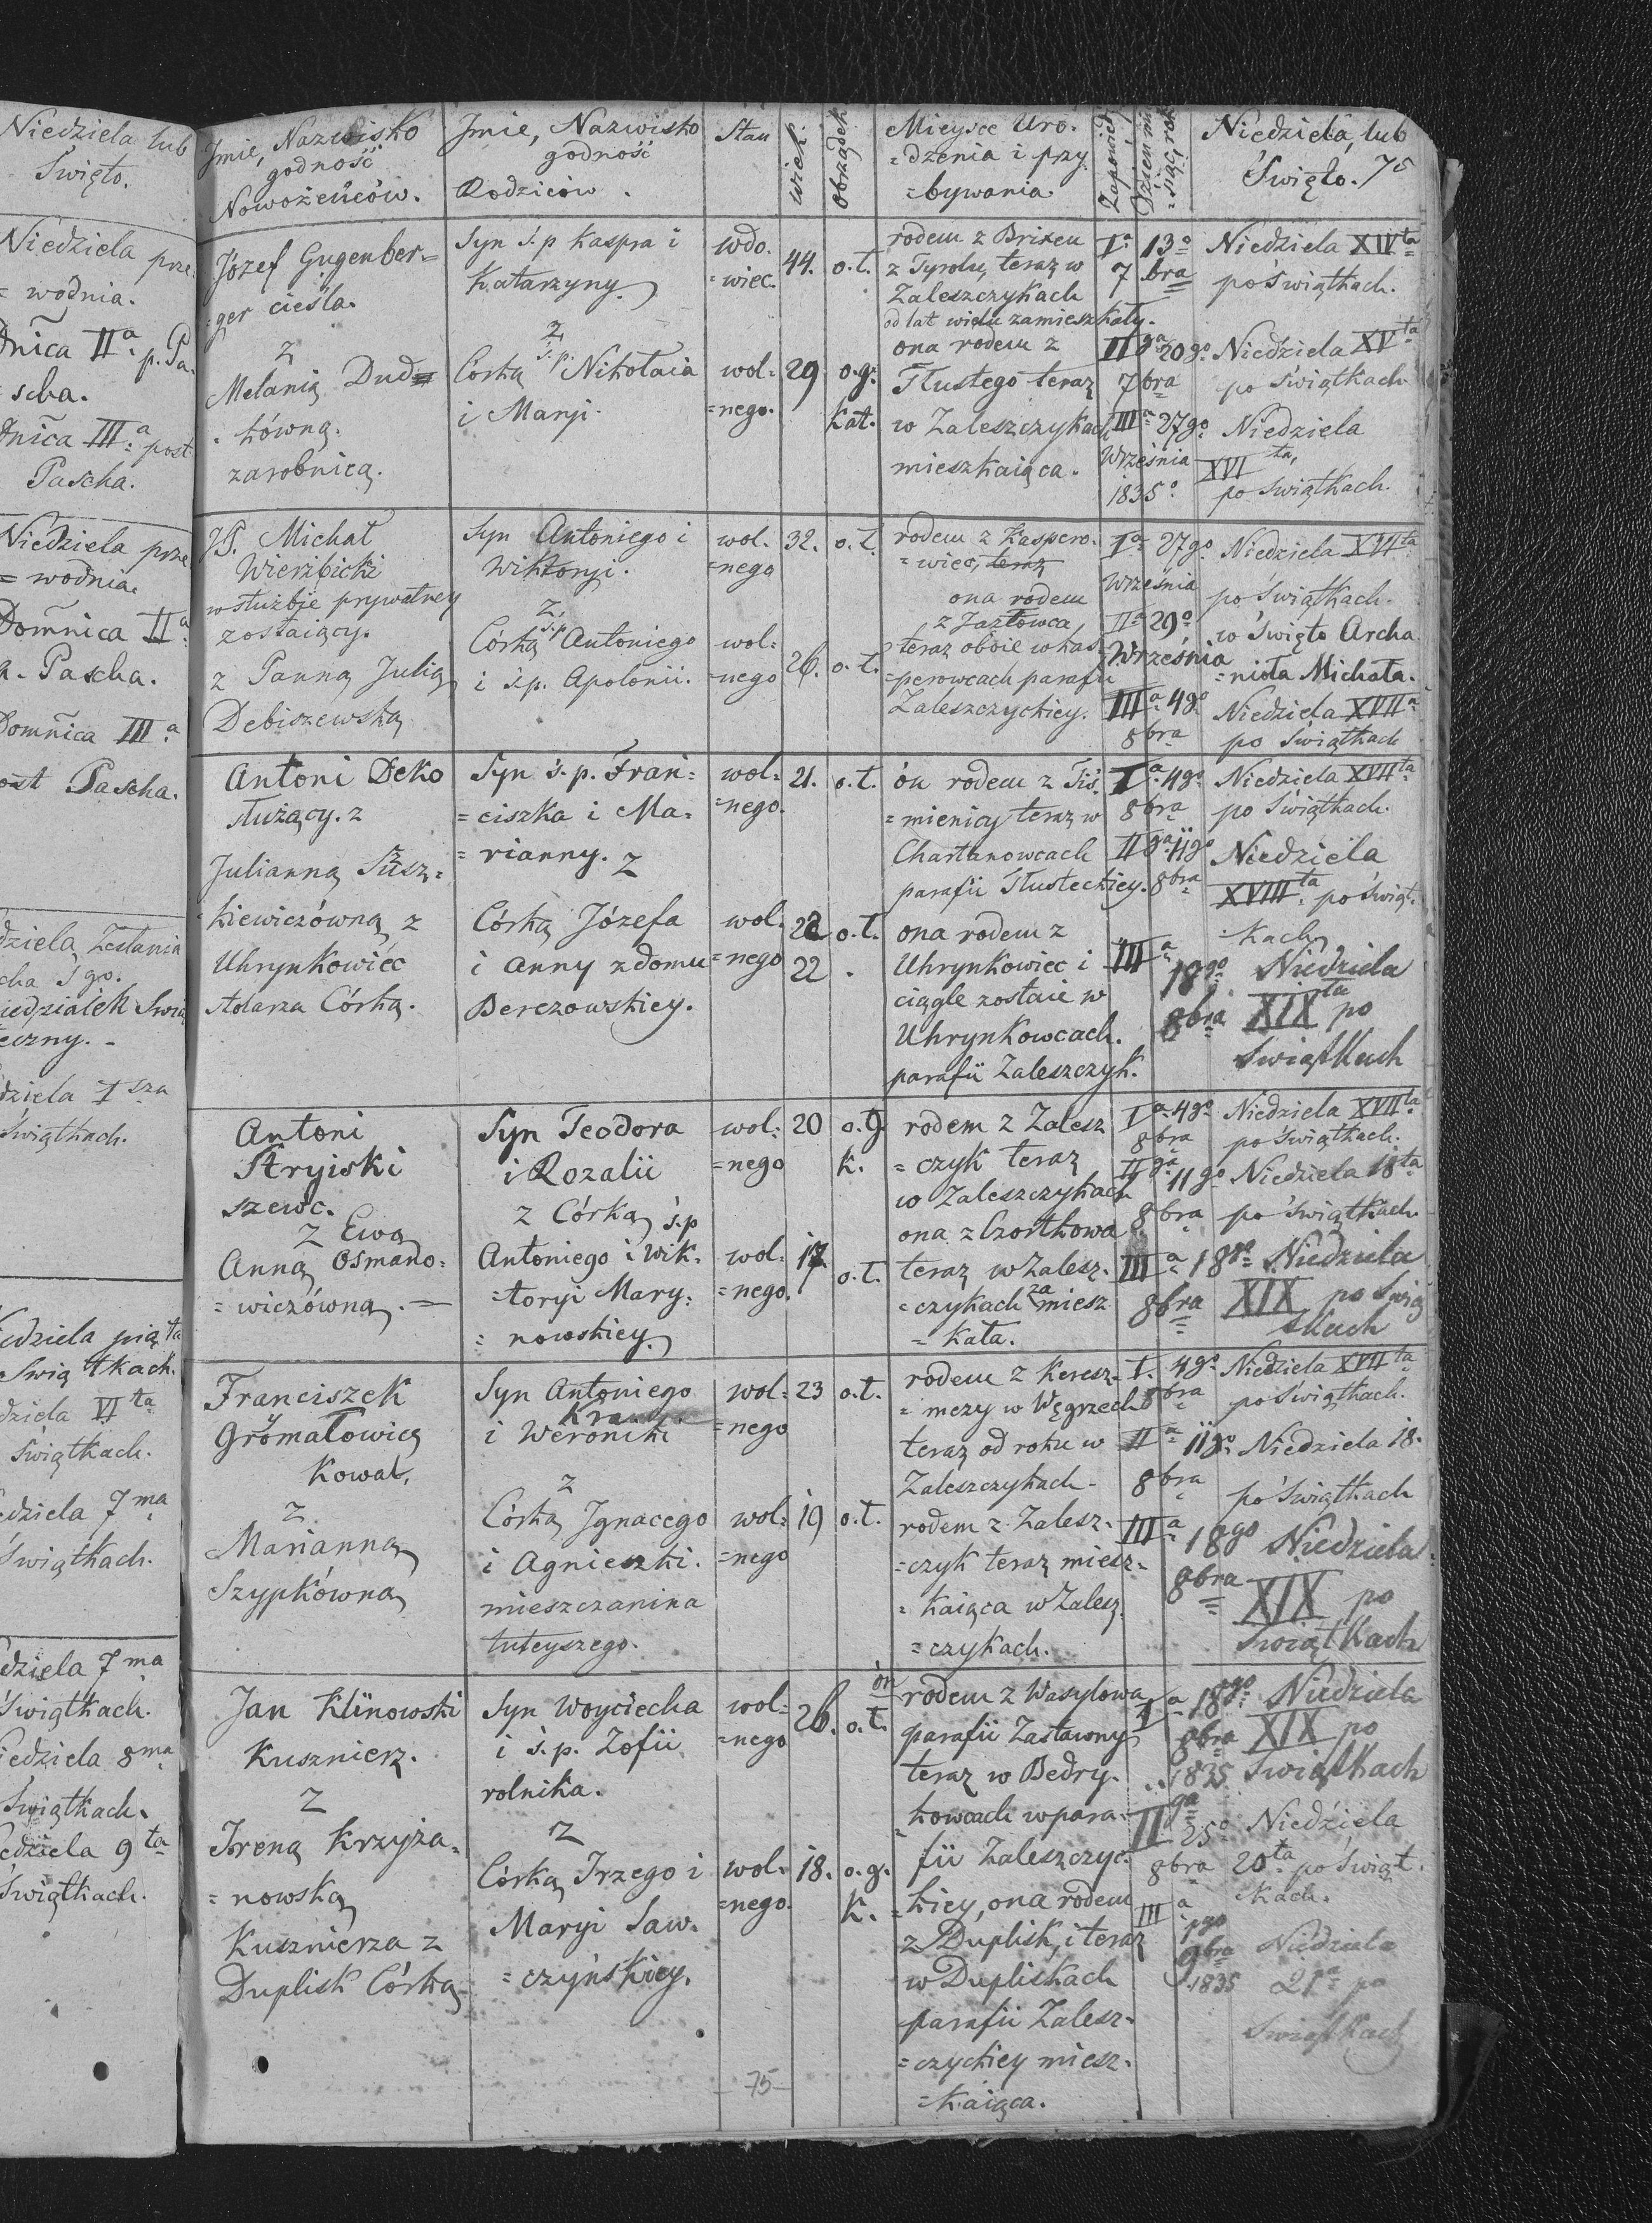 Niedziela lub
Święto.
Niedziela prze=
= wodnia.
Dnica II a p. Pa=
= scha.
Dnica III a post
Pascha.
Niedziela prze
= wodnia.
Domnica II a
Pascha.
Domnica III a
ost Pascha.
dziela Zesłania
cha S go.
iedziałek Świą
eczny. -
dziela I sza
Świątkach.
iedziela piąta
Świątkach.
dziela VI ta
Świątkach.
edziela 7 ma
Świątkach.
dziela 7 ma
Świątkach.
iedziela 8 ma
Świątkach.
edziela 9 ta
Świątkach.
Jmie, Nazwisko
godność
Nowożeńców.
Jmie, Nazwisko
godność
Rodziców.
Stan
wiek.
obrządek
Mieysce Uro=
= dzenia i przy
= bywania.
Zapowiedź
Dzień mie
= siąc, rok
Niedziela, lub
Święto. 75
Józef Gugenber=
= ger cieśla.
z
Melanią Dud=
= kówną.
zarobnicą.
Syn ś. p Kaspra i
Katarzyny
z
Corką ś. p. Nikołaia
i Maryi.
wdo.
= wiec.
wol=
= nego.
44.
29
o. ł.
o. g.
Kat.
rodem z Brixen
z Tyrolu, teraz w
Zaleszczykach
od lat wielu zamieszkały.
ona rodem z
Tłustego teraz
w Zaleszczykach
mieszkaiąca.
I a 13 o
7 bra
II ga 20 go
7 bra
III a 27 go
Września
1835 o
Niedziela XIV ta
po świątkach.
Niedziela XV ta
po świątkach.
Niedziela
XVI ta,
po świątkach.
JP. Michał
Wierzbicki
w służbie prywatney
zostaiący.
z Panną Julią
Debiszewską
Syn Antoniego i
Wiktoryi.
z
Córką ś. p. Antoniego
i ś. p. Apolonii.
wol.
= nego
wol=
= nego
32.
26.
o. ł.
o. ł.
rodem z Kaspero=
= wiec, teraz
ona rodem
z Jazłowca
teraz oboie w Kas=
= perowcach parafii
Zaleszczyckiey.
I a 27 go
Września
II a 29 o
Września
III a 4 go
8 bra
Niedziela XVI ta
po świątkach.
w Święto Archa
= nioła Michała.
Niedziela XVII a
po Świątkach
Antoni Deko
służący. z
Julianną Susz=
= kiewiczówną z
Uhrynkowiec
stolarza Córką.
Syn ś. p. Fran=
= ciszka i Ma=
= rianny. z
Córką Józefa
i Anny z domu
Berezowskiey.
wol=
= nego.
wol.
= nego
21.
22
22
o. ł.
o. ł.
ón rodem z Tiś=
= mienicy teraz w
Chartanowcach
parafii Tłusteckiey.
ona rodem z
Uhrynkowiec i
ciągle zostaie w
Uhrynkowcach.
parafii Zaleszczyk.
I a 4 go
8 bra
II ga 11 go
8 bra
III a
18 go
8 bra
Niedziela XVII ta
po Świątkach.
Niedziela
XVIII ta po świąt.
= kach
Niedziela
XIX ta po
Świątkach
Antoni
Stryiski
szewc.
z Ewą
Anną Osmano=
= wiczówną. —
Syn Teodora
i Rozalii
z Córką ś. p
Antoniego i Wik=
= toryi Mary=
= nowskiey.
wol=
= nego
wol=
= nego.
20
17.
o. g
k.
o. ł.
rodem z Zalesz
= czyk teraz
w Zaleszczykach
ona z Czortkowa
teraz w Zalesz=
= czykach zamiesz
= kała.
I a 4 go
8 bra
II ga 11 go
8 bra
III a 18 go
8 bra
Niedziela XVII ta
po świątkach.
Niedziela 18 ta
po świątkach.
Niedziela
XIX po Świą
tkach
Franciszek
Gromałowicz
Kowal,
z
Marianną
Szypkówną
Syn Antoniego
i Weroniki
z
Córką Jgnacego
i Agnieszki.
mieszczanina
tuteyszego.
wol=
= nego
wol=
= nego
23
19
o. ł.
o. ł.
rodem z Keresz=
= mezy w Węgrzech
teraz od roku w
Zaleszczykach.
rodem z Zalesz=
= czyk teraz miesz=
= kaiąca w Zalesz
= czykach.
I. 4 go
8 bra
II a 11 go
8 bra
III a 18 go
8 bra
Niedziela XVII ta
po Świątkach.
Niedziela 18.
po świątkach
Niedziela
XIX po
Świątkach
Jan Klinowski
Kusznierz.
z
Jreną Krzyża=
= nowską
Kusznierza z
Duplisk Córką
Syn Woyciecha
i ś. p. Zofii
rolnika.
z
Córką Jrzego i
Maryi Saw=
= czyńskiey.
wol=
= nego
wol=
= nego.
26.
18.
o. ł.
o. g.
K.
ón
rodem z Wasylowa
parafii Zastawny
teraz w Bedry=
= kowcach w para=
fii Zaleszczyc=
= kiey, ona rodem
z Duplisk, i teraz
w Dupliskach
parafii Zalesz=
= czyckiey miesz=
= kaiąca.
I a 18 go
8 bra
1835
II ga 25 o
8 bra
III a
1 go
9 bra
1835
Niedziela
XIX po
Świątkach
Niedziela
20 ta po świąt.
kach.
Niedziela
21 a po
Świątkach
75